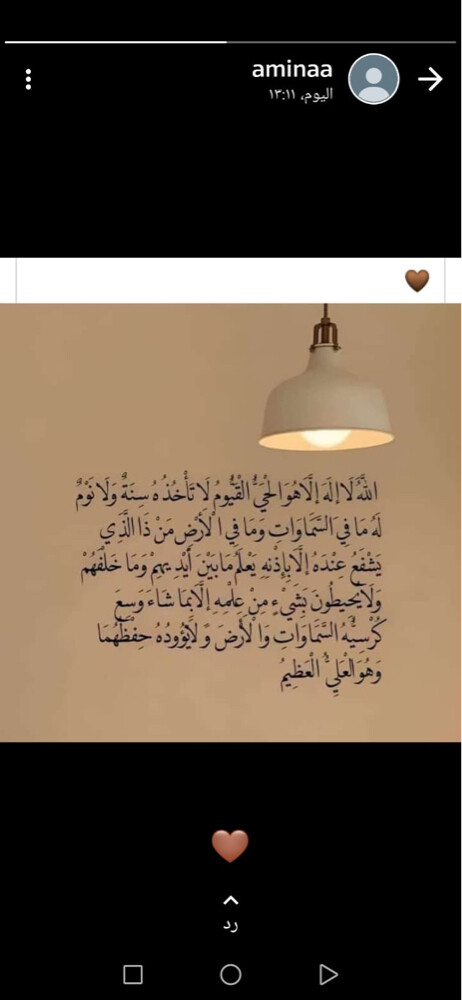 aminaa
اليوم، ١٣:١١
اللَّهُ لَا إِلَهَ إِلَّا هُوَ الْحَيُّ الْقَيُّومُ لَا تَأْخُذُهُ سِنَةٌ وَلَا نَوْمٌ
لَهُ مَا فِي السَّمَاوَاتِ وَمَا فِي الْأَرْضِ مَنْ ذَا الَّذِي
يَشْفَعُ عِنْدَهُ إِلَّا بِإِذْنِهِ يَعْلَمُ مَا بَيْنَ أَيْدِيهِمْ وَمَا خَلْفَهُمْ
وَلَا يُحِيطُونَ بِشَيْءٍ مِنْ عِلْمِهِ إِلَّا بِمَا شَاءَ وَسِعَ
كُرْسِيُّهُ السَّمَاوَاتِ وَالْأَرْضَ وَلَا يَؤُودُهُ حِفْظُهُمَا
وَهُوَ الْعَلِيُّ الْعَظِيمُ
رد